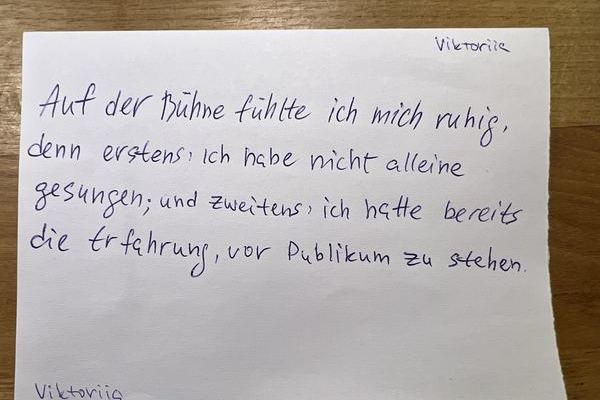 Viktoriia
Auf der Bühne fühlte ich mich ruhig,
denn erstens, ich habe nicht alleine
gesungen; und zweitens, ich hatte bereits
die Erfahrung, vor Publikum zu stehen.
Viktoriia